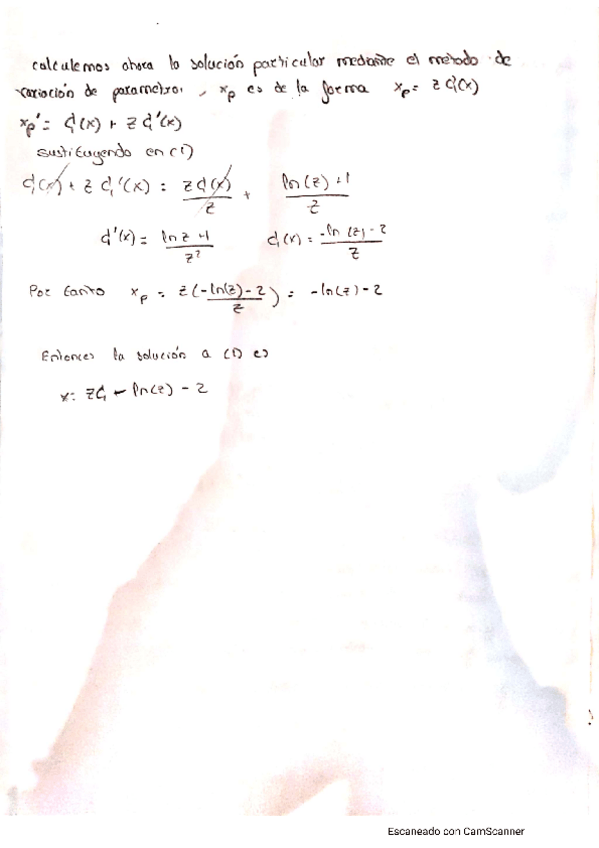 calculemos ahora la solución particular mediante el método de
variación de parametros, xp es de la forma xp = z C1(x)
xp' = C1(x) + z C1'(x)
sustituyendo en (1)
C1(x) + z C1'(x) = z C1(x) / z + ln(z) + 1 / z
C1'(x) = ln z + 1 / z² C1(x) = -ln(z) - 2 / z
Por tanto xp = z (-ln(z) - 2 / z) = -ln(z) - 2
Entonces la solución a (1) es
x = zC1 - ln(z) - 2
Escaneado con CamScanner